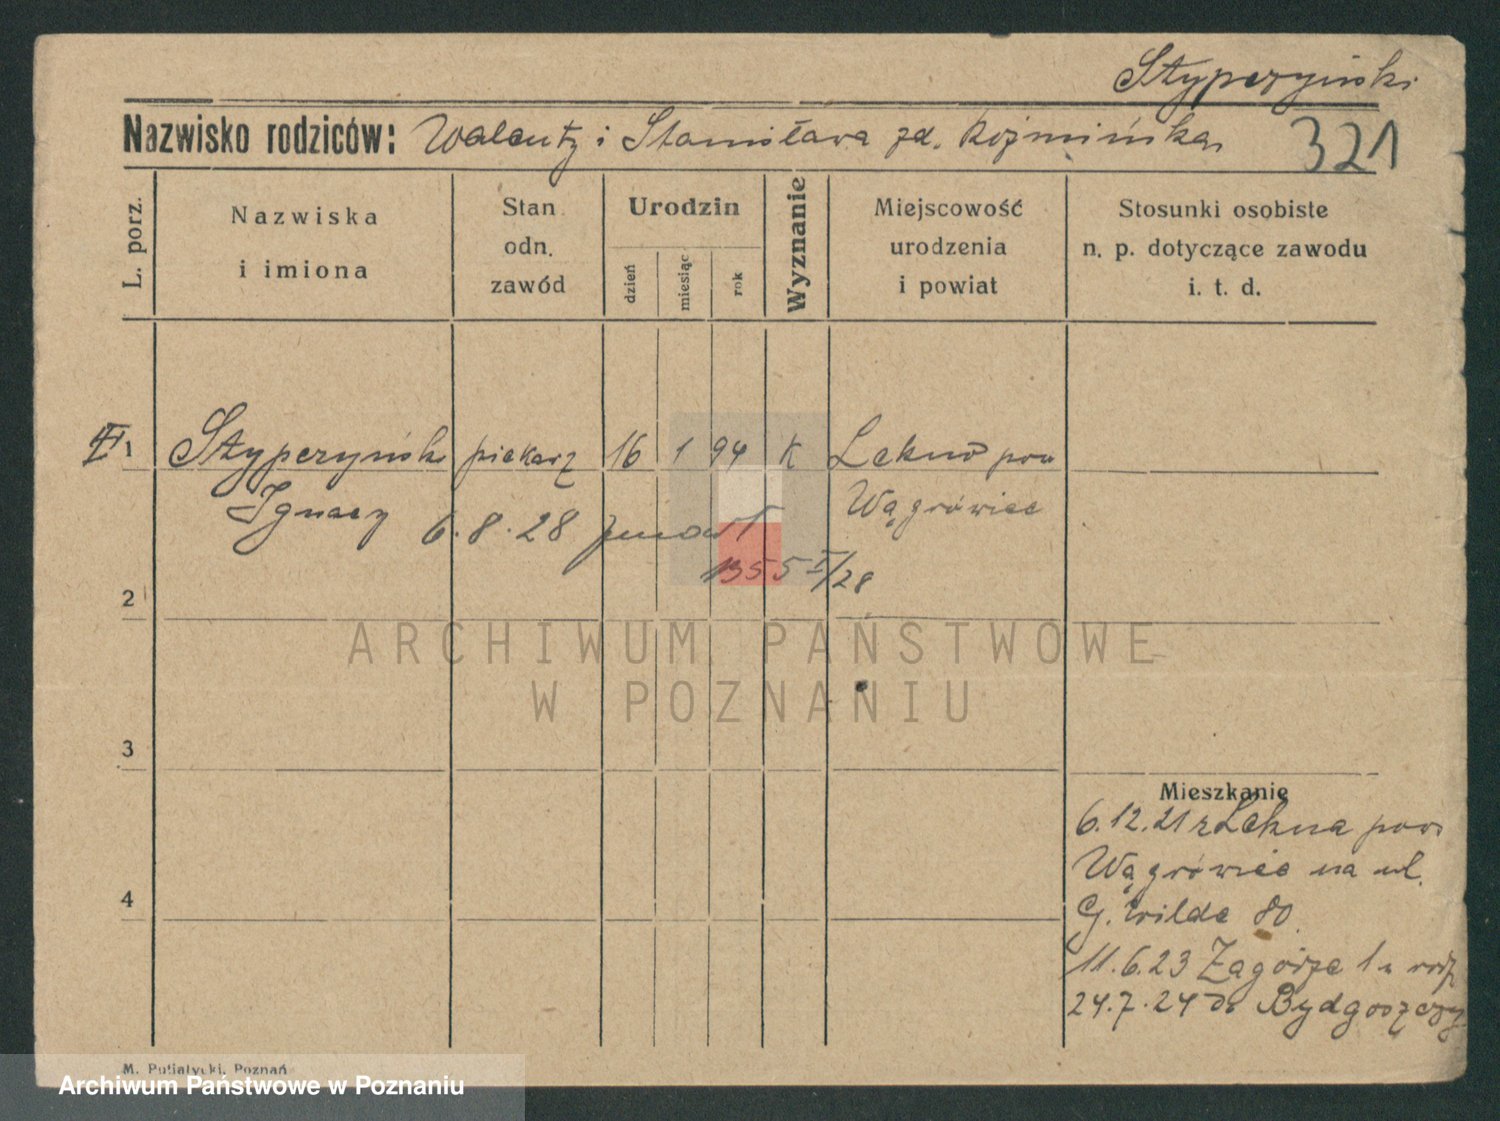 Styperzyński
Nazwisko rodziców: Walenty i Stanisława zd. Koźmińska
321
L. porz.
Nazwiska
i imiona
Stan
odn.
zawód
Urodzin
dzień
miesiąc
rok
Wyznanie
Miejscowość
urodzenia
i powiat
Stosunki osobiste
n. p. dotyczące zawodu
i. t. d.
1 Styperzyński piekarz 16 1 94 K Lekno pow
Ignacy Wągrówiec
6.8.28 zmarł
1355 I/28
2
ARCHIWUM PAŃSTWOWE
W POZNANIU
3
4
Mieszkanie
6.12.21 z Lekna pow
Wągrówiec na ul.
G. Wilda 80
11.6.23 Zagórze 1 u rodz
24.7.24 do Bydgoszczy
M. Putiatycki, Poznań
Archiwum Państwowe w Poznaniu